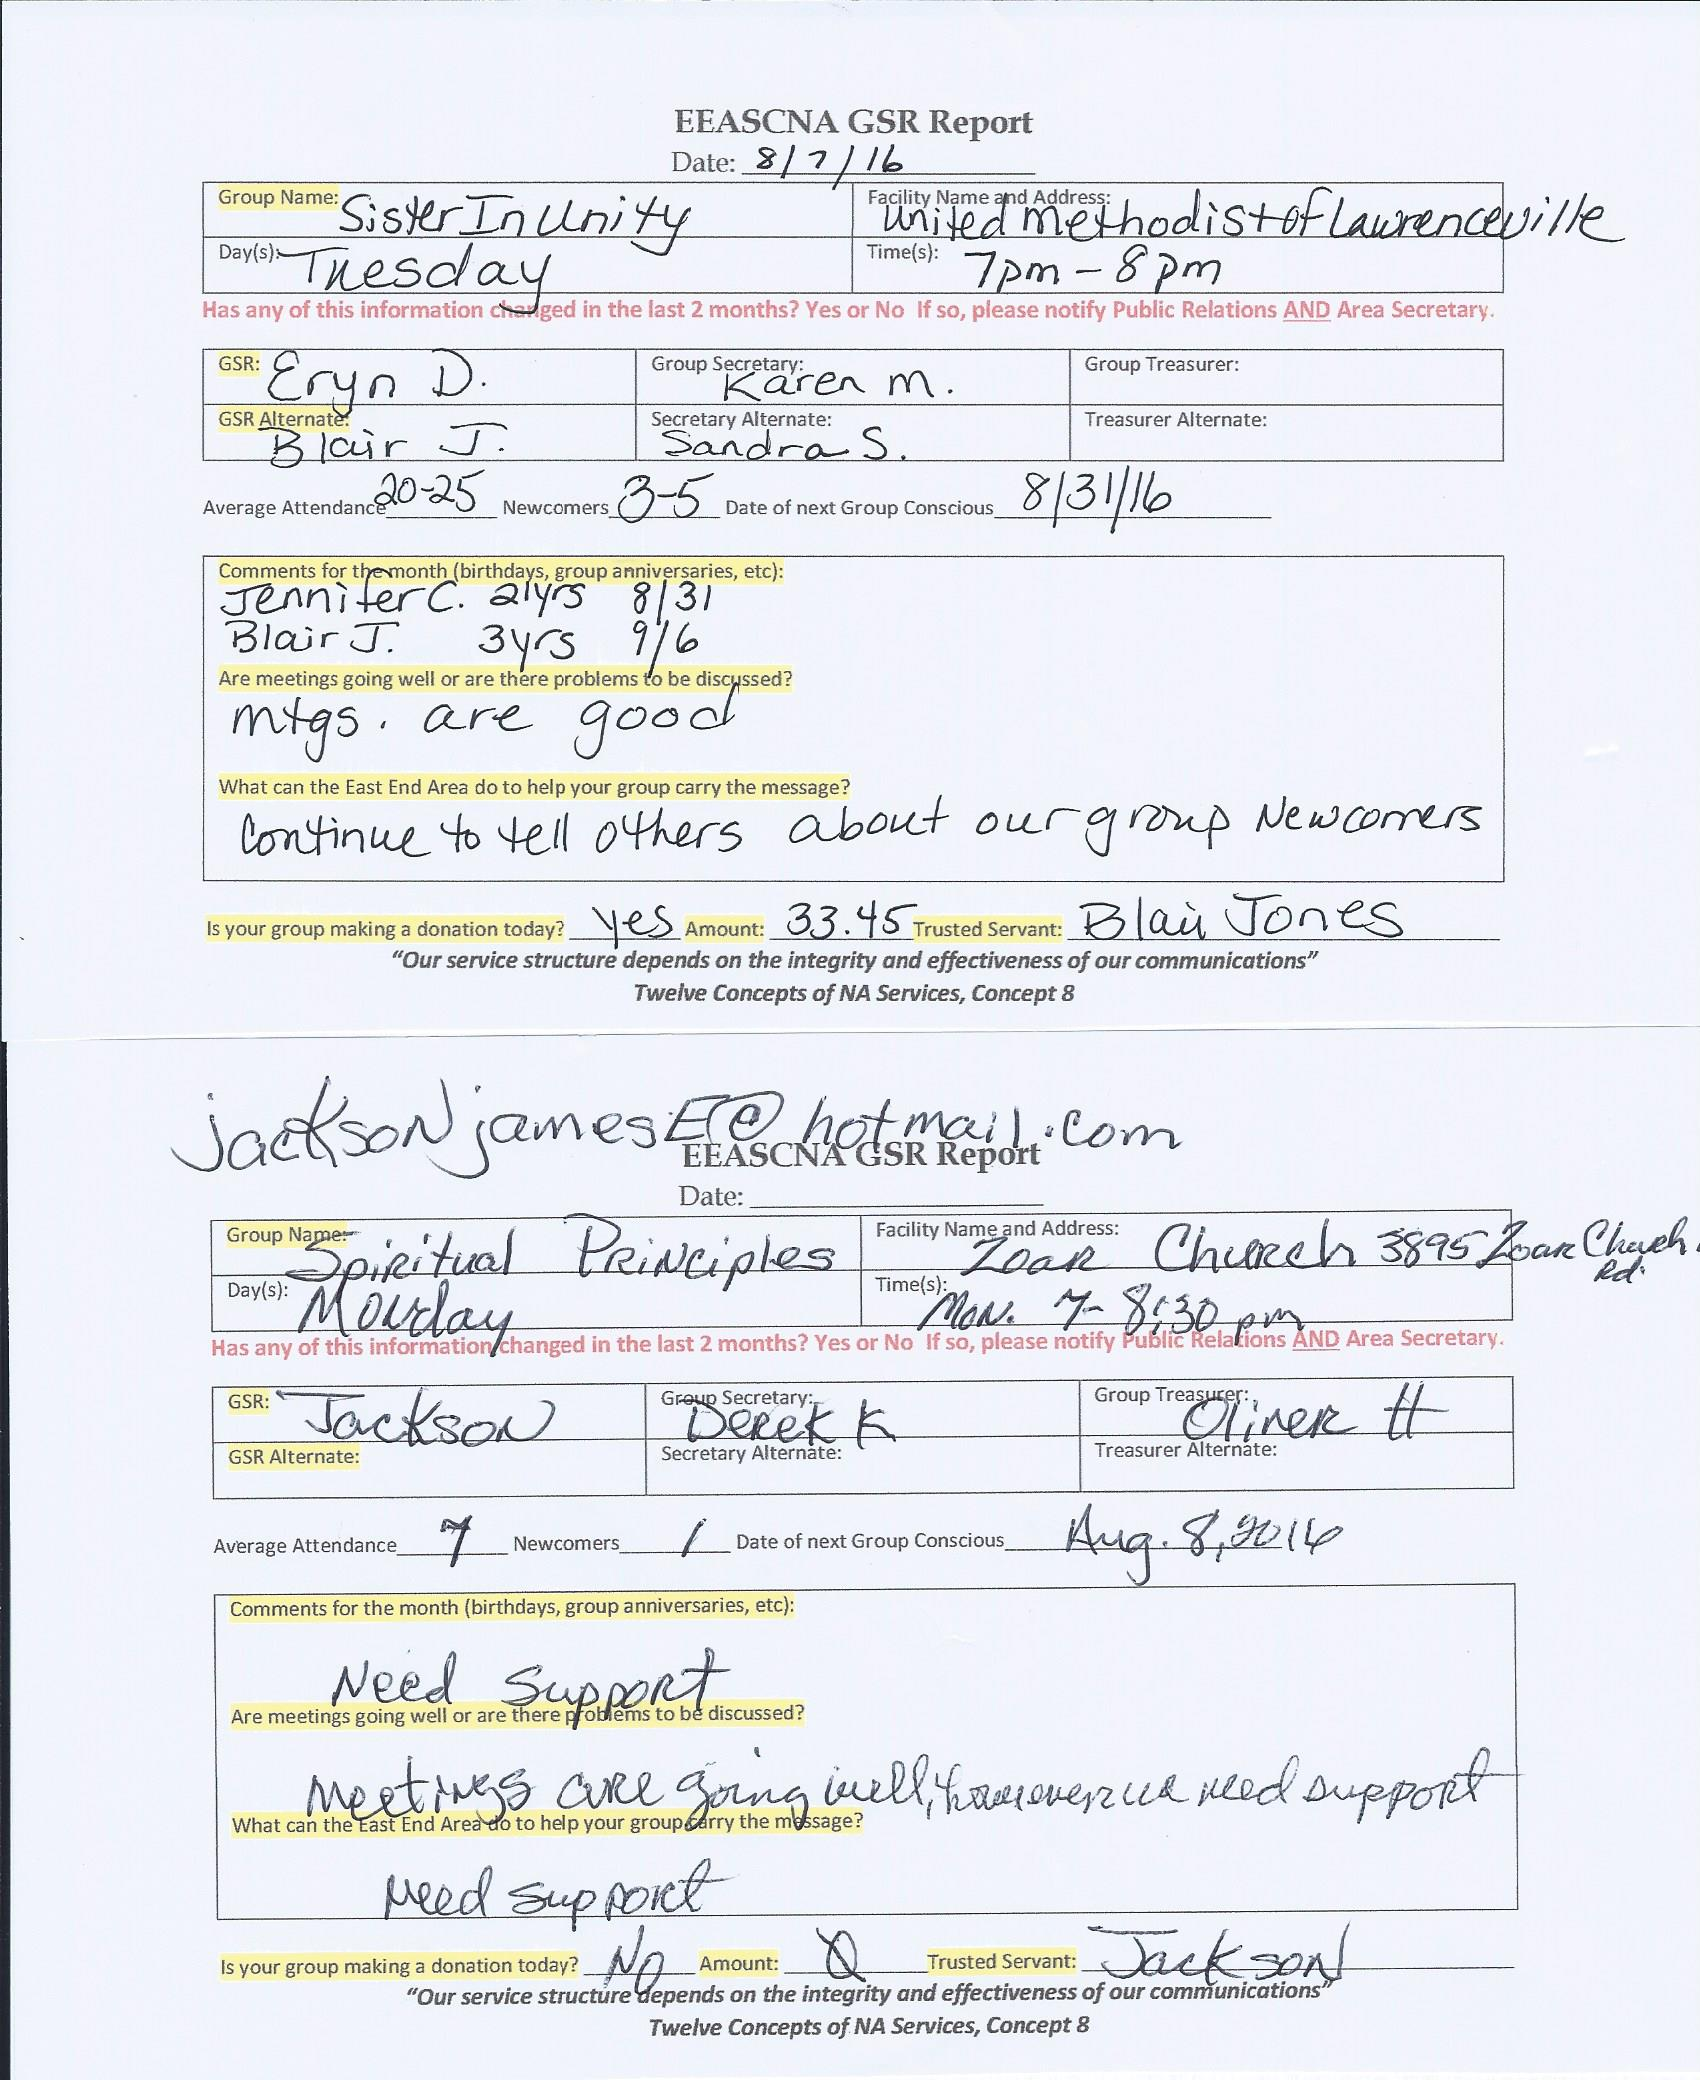 EEASCNA GSR Report
Date: 8/7/16
Group Name: Sister In Unity Facility Name and Address: United Methodist of Lawrenceville
Day(s): Tuesday Time(s): 7pm - 8pm
Has any of this information changed in the last 2 months? Yes or No If so, please notify Public Relations AND Area Secretary.
GSR: Eryn D. Group Secretary: Karen M. Group Treasurer:
GSR Alternate: Blair J. Secretary Alternate: Sandra S. Treasurer Alternate:
Average Attendance 20-25 Newcomers 3-5 Date of next Group Conscious 8/31/16
Comments for the month (birthdays, group anniversaries, etc):
Jennifer C. 21yrs 8/31
Blair J. 3yrs 9/6
Are meetings going well or are there problems to be discussed?
mtgs. are good
What can the East End Area do to help your group carry the message?
Continue to tell others about our group Newcomers
Is your group making a donation today? yes Amount: 33.45 Trusted Servant: Blair Jones
“Our service structure depends on the integrity and effectiveness of our communications”
Twelve Concepts of NA Services, Concept 8
jacksonjamesE@hotmail.com
EEASCNA GSR Report
Date:
Group Name: Spiritual Principles Facility Name and Address: Zoar Church 3895 Zoar Church Rd.
Day(s): Monday Time(s): Mon. 7-8:30 pm
Has any of this information changed in the last 2 months? Yes or No If so, please notify Public Relations AND Area Secretary.
GSR: Jackson Group Secretary: Derek K Group Treasurer: Oliver H
GSR Alternate: Secretary Alternate: Treasurer Alternate:
Average Attendance 7 Newcomers 1 Date of next Group Conscious Aug. 8, 2016
Comments for the month (birthdays, group anniversaries, etc):
Need Support
Are meetings going well or are there problems to be discussed?
Meetings are going well, however we need support
What can the East End Area do to help your group carry the message?
Need support
Is your group making a donation today? No Amount: 0 Trusted Servant: Jackson
“Our service structure depends on the integrity and effectiveness of our communications”
Twelve Concepts of NA Services, Concept 8